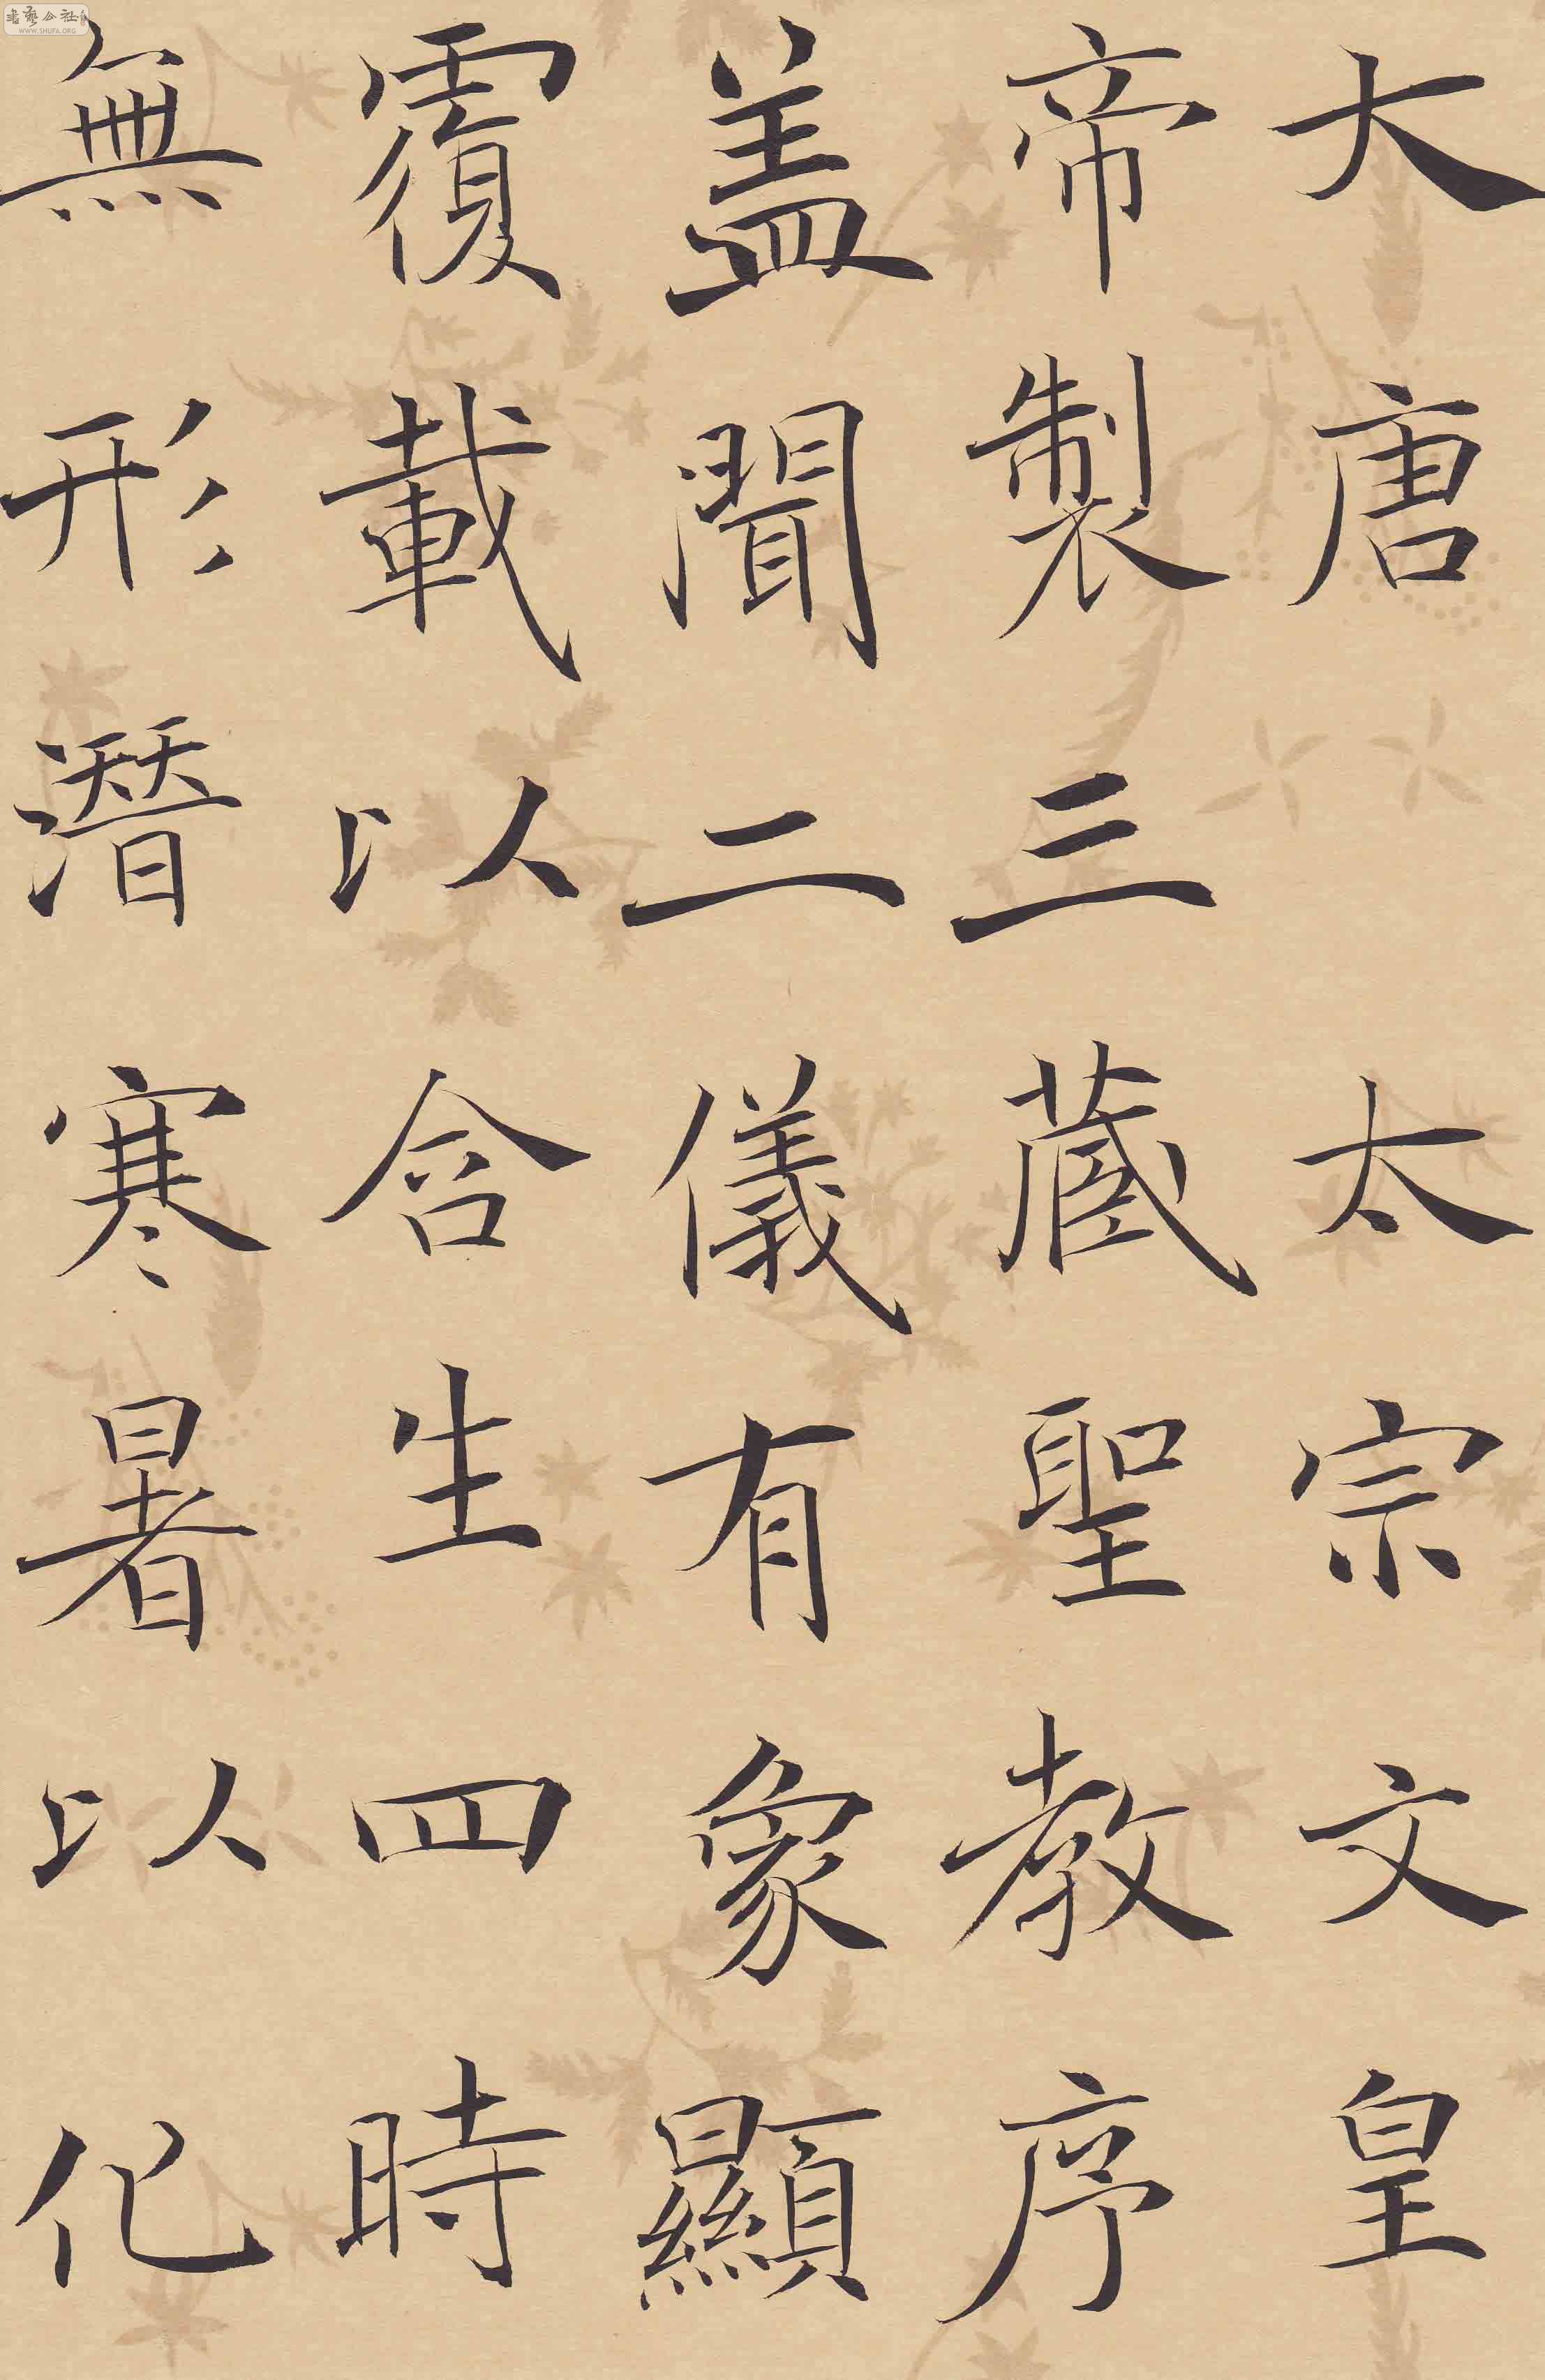 大唐 太宗文皇
帝製三蔵聖教序
盖聞二儀有象顯
覆載以含生四時
無形潛寒暑以化
書藝公社
WWW.SHUFA.ORG